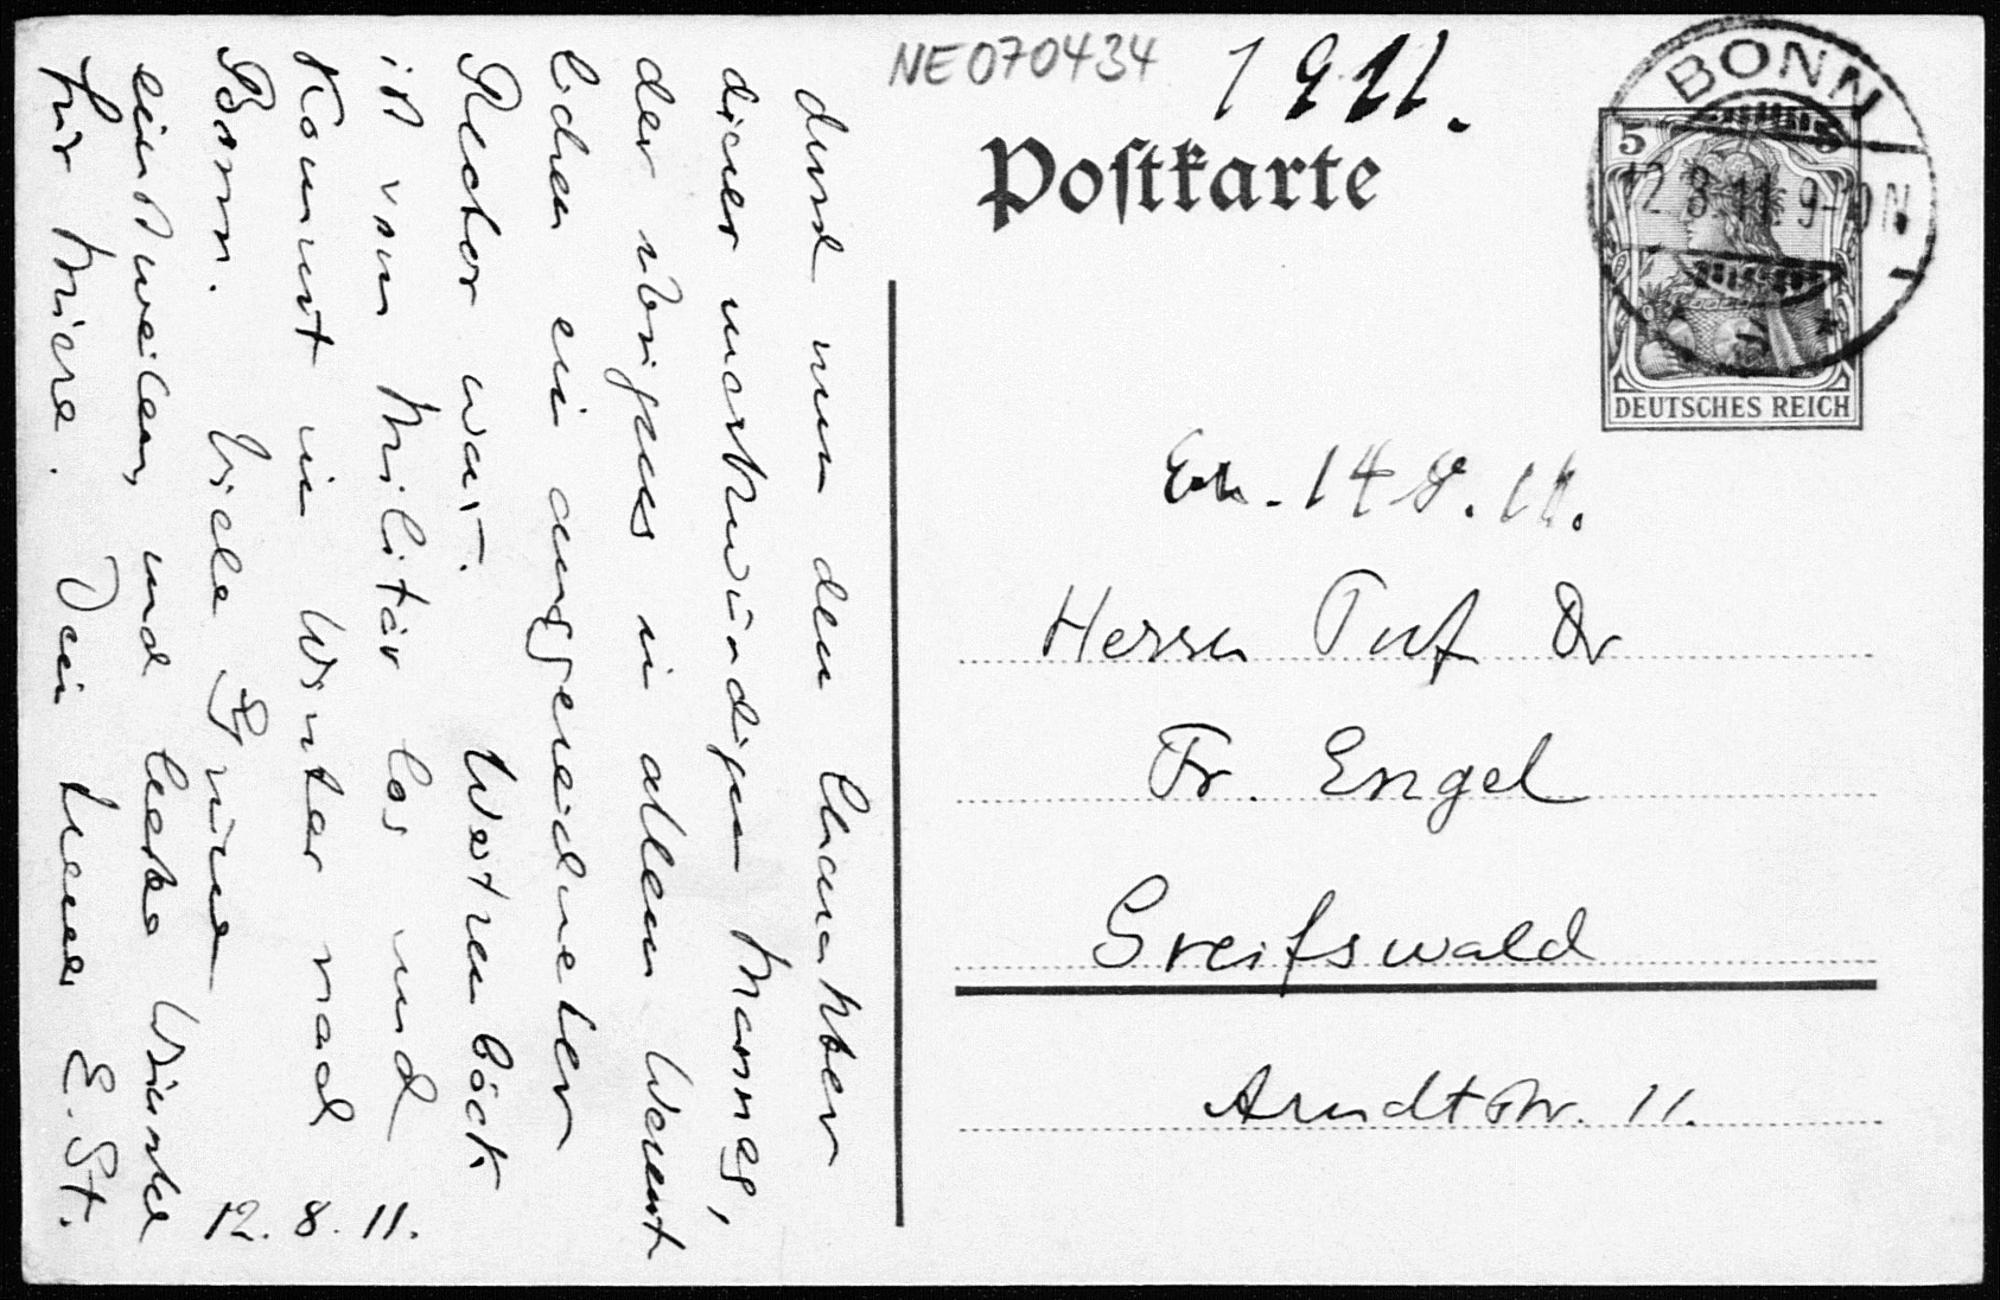 NE070434
1911.
Postkarte
BONN
12.8.11.9-10N.
5
5
DEUTSCHES REICH
14.8.11.
Herrn Prof Dr
Fr. Engel
Greifswald
Arndtstr. 11.
durch nun den Charakter
dieser merkwürdigen Mannes,
der übrigens in allem Wesent
lichen ein ausgezeichneter
Rector war. Westenböck
ist vom Militär los und
kommt im Winter nach
Bonn. Viele Grüsse
einstweilen, und beste Wünsche
für Kiere. Dein treuer E. St.
12. 8. 11.